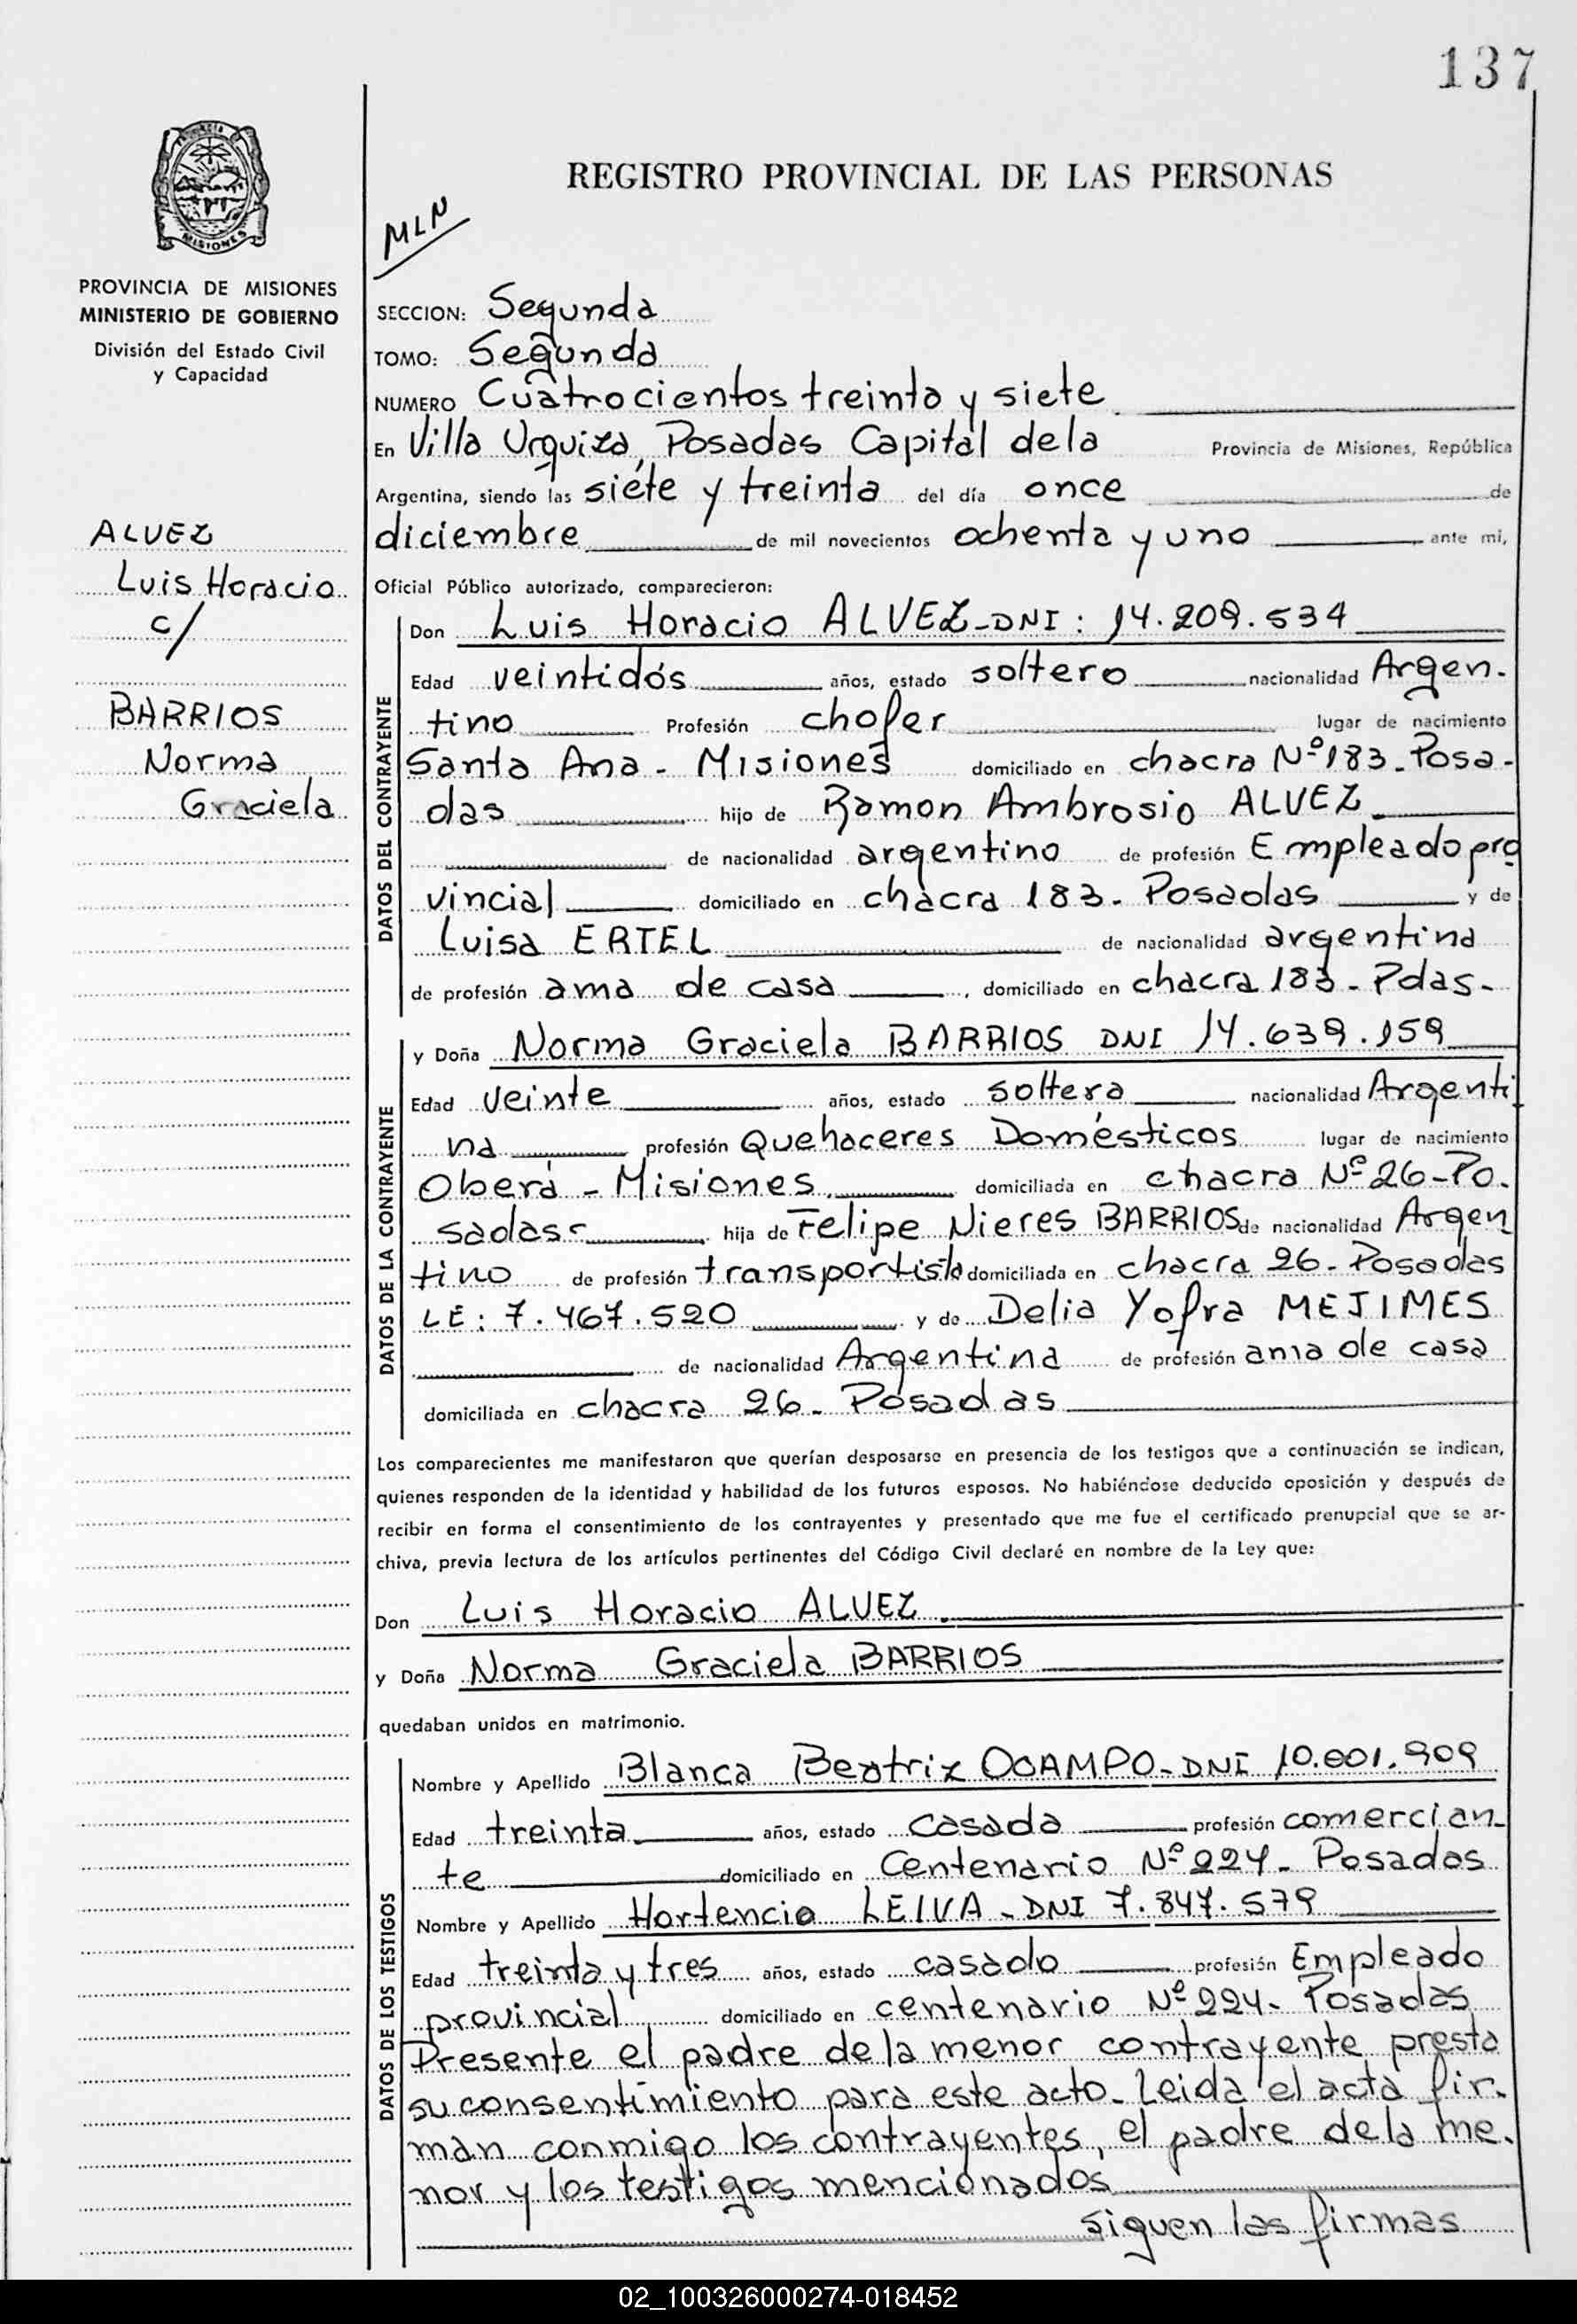 137
REGISTRO PROVINCIAL DE LAS PERSONAS
MLN
MISIONES
PROVINCIA DE MISIONES
MINISTERIO DE GOBIERNO
División del Estado Civil
y Capacidad
ALVEZ
Luis Horacio
c/
BARRIOS
Norma
Graciela
SECCION: Segunda
TOMO: Segundo
NUMERO Cuatrocientos treinta y siete
En Villa Urquiza, Posadas Capital de la Provincia de Misiones, República
Argentina, siendo las siete y treinta del día once de
diciembre de mil novecientos ochenta y uno ante mi,
Oficial Público autorizado, comparecieron:
DATOS DEL CONTRAYENTE
Don Luis Horacio ALVEZ - DNI: 14.209.534
Edad veintidós años, estado soltero nacionalidad Argen.
tino Profesión chofer lugar de nacimiento
Santa Ana - Misiones domiciliado en chacra Nº 183 - Posa-
das hijo de Ramon Ambrosio ALVEZ
de nacionalidad argentino de profesión Empleado pro
vincial domiciliado en chacra 183 - Posadas y de
Luisa ERTEL de nacionalidad argentina
de profesión ama de casa, domiciliado en chacra 183 - Pdas-
DATOS DE LA CONTRAYENTE
y Doña Norma Graciela BARRIOS DNI 14.639.159
Edad veinte años, estado soltera nacionalidad Argenti
na profesión Quehaceres Domésticos lugar de nacimiento
Oberá - Misiones domiciliada en chacra Nº 26 - Po.
sadas- hija de Felipe Nieres BARRIOS de nacionalidad Argen
tino de profesión transportista domiciliada en chacra 26 - Posadas
LE: 7.467.520 y de Delia Yofra MEJIMES
de nacionalidad Argentina de profesión ama de casa
domiciliada en chacra 26 - Posadas
Los comparecientes me manifestaron que querían desposarse en presencia de los testigos que a continuación se indican,
quienes responden de la identidad y habilidad de los futuros esposos. No habiéndose deducido oposición y después de
recibir en forma el consentimiento de los contrayentes y presentado que me fue el certificado prenupcial que se ar-
chiva, previa lectura de los artículos pertinentes del Código Civil declaré en nombre de la Ley que:
Don Luis Horacio ALVEZ
y Doña Norma Graciela BARRIOS
quedaban unidos en matrimonio.
DATOS DE LOS TESTIGOS
Nombre y Apellido Blanca Beatriz OCAMPO - DNI 10.001.909
Edad treinta años, estado casada profesión comercian-
te domiciliado en Centenario Nº 224 - Posadas
Nombre y Apellido Hortencio LEIVA - DNI 7.847.579
Edad treinta y tres años, estado casado profesión Empleado
provincial domiciliado en centenario Nº 224 - Posadas
Presente el padre de la menor contrayente presta
su consentimiento para este acto - Leida el acta fir-
man conmigo los contrayentes, el padre de la me.
nor y los testigos mencionados
siguen las firmas
02_100326000274-018452